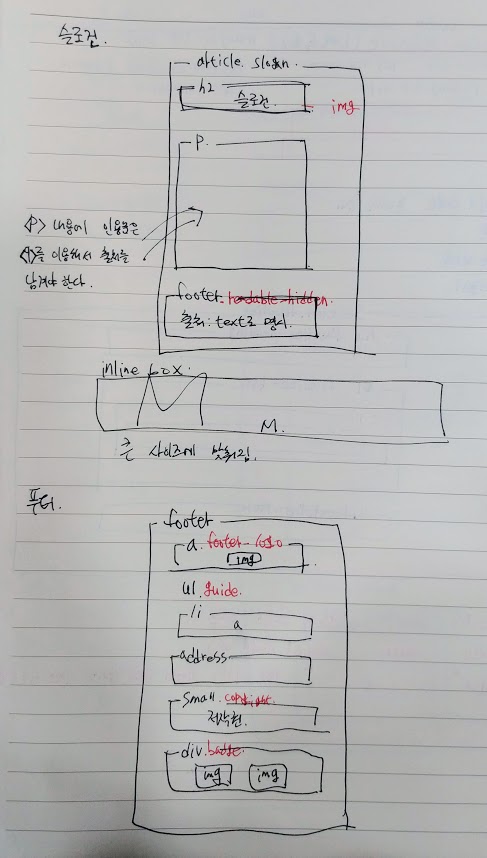 슬로건.
article. slogan.
h2
슬로건.
img
p.
<P> 내용에 인용문은
<q>를 이용해서 출처를
남겨야 한다.
footer. readable-hidden.
출처: text로 명시.
inline box.
M.
큰 사이즈에 맞춰짐.
푸터.
footer
a. footer-logo
img
ul. guide.
li
a
address
small. copyright.
저작권.
div.
img img